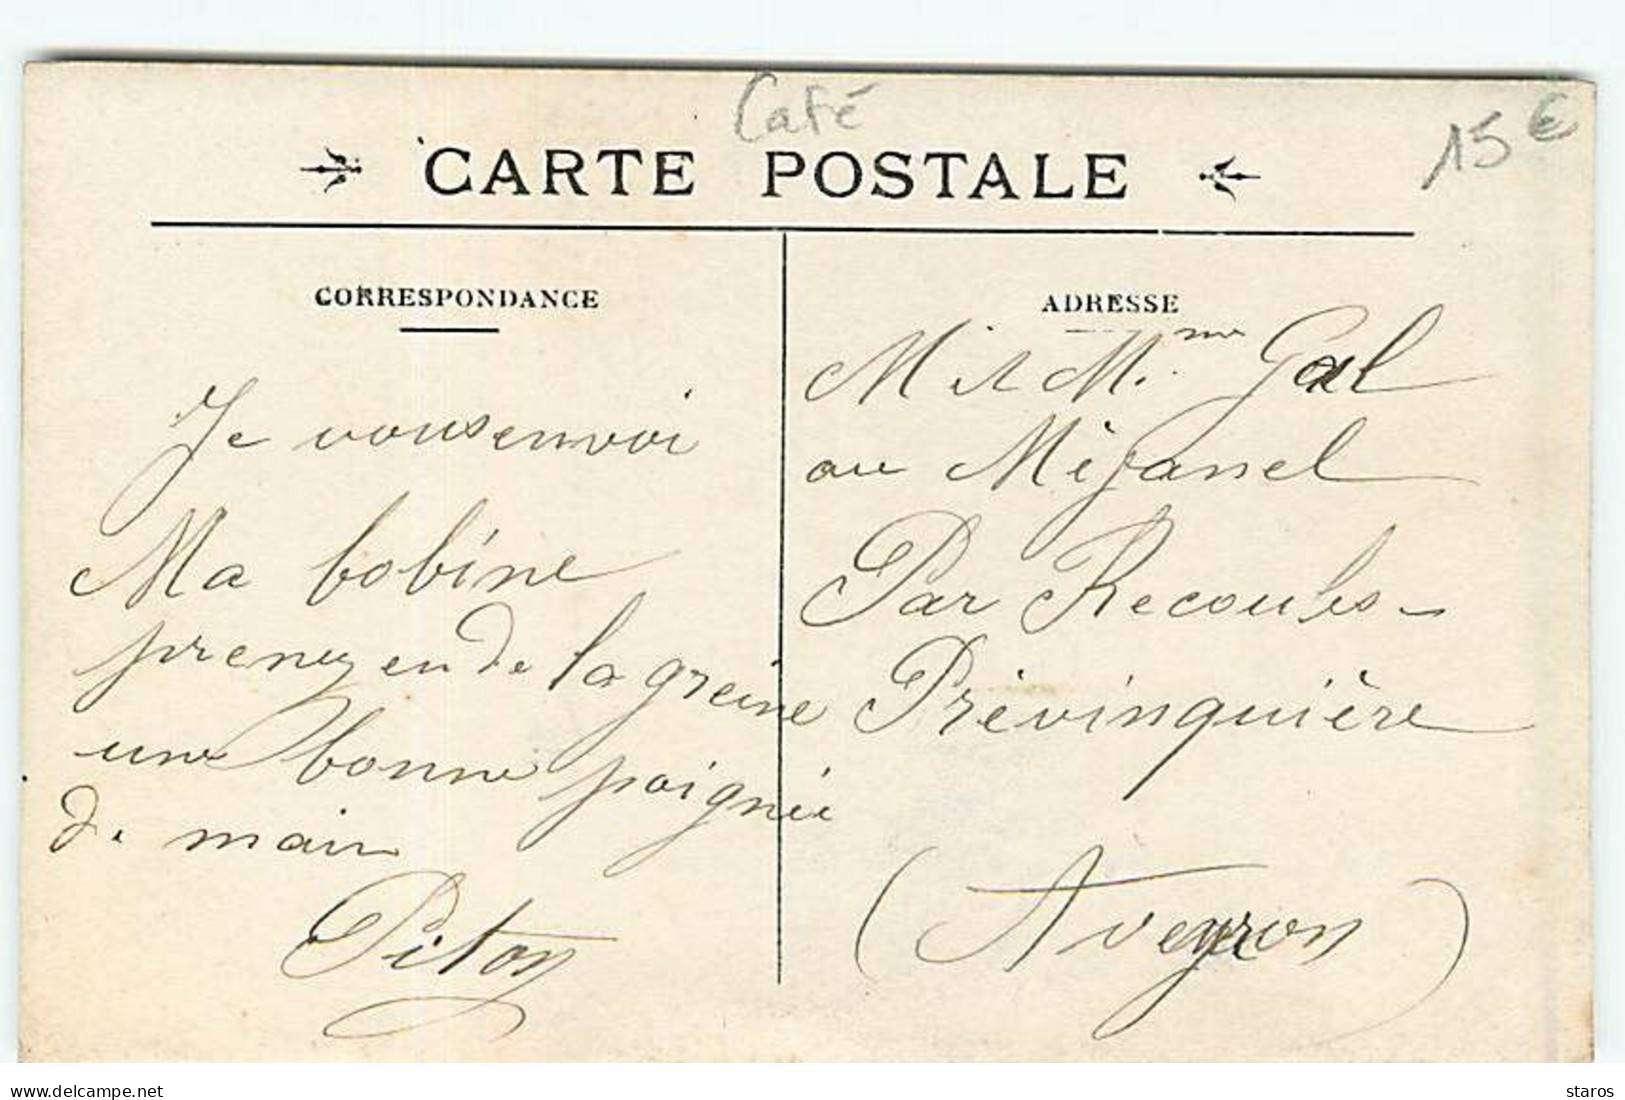 Café
15 €
CARTE POSTALE
CORRESPONDANCE
Je vous envoi
Ma bobine
prenez en de la greine
une bonne poignée
de main
Piton
ADRESSE
M et Mme Gal
au Méjanel
Par Recoules-
Prévinquière
(Aveyron)
www.delcampe.net
staros